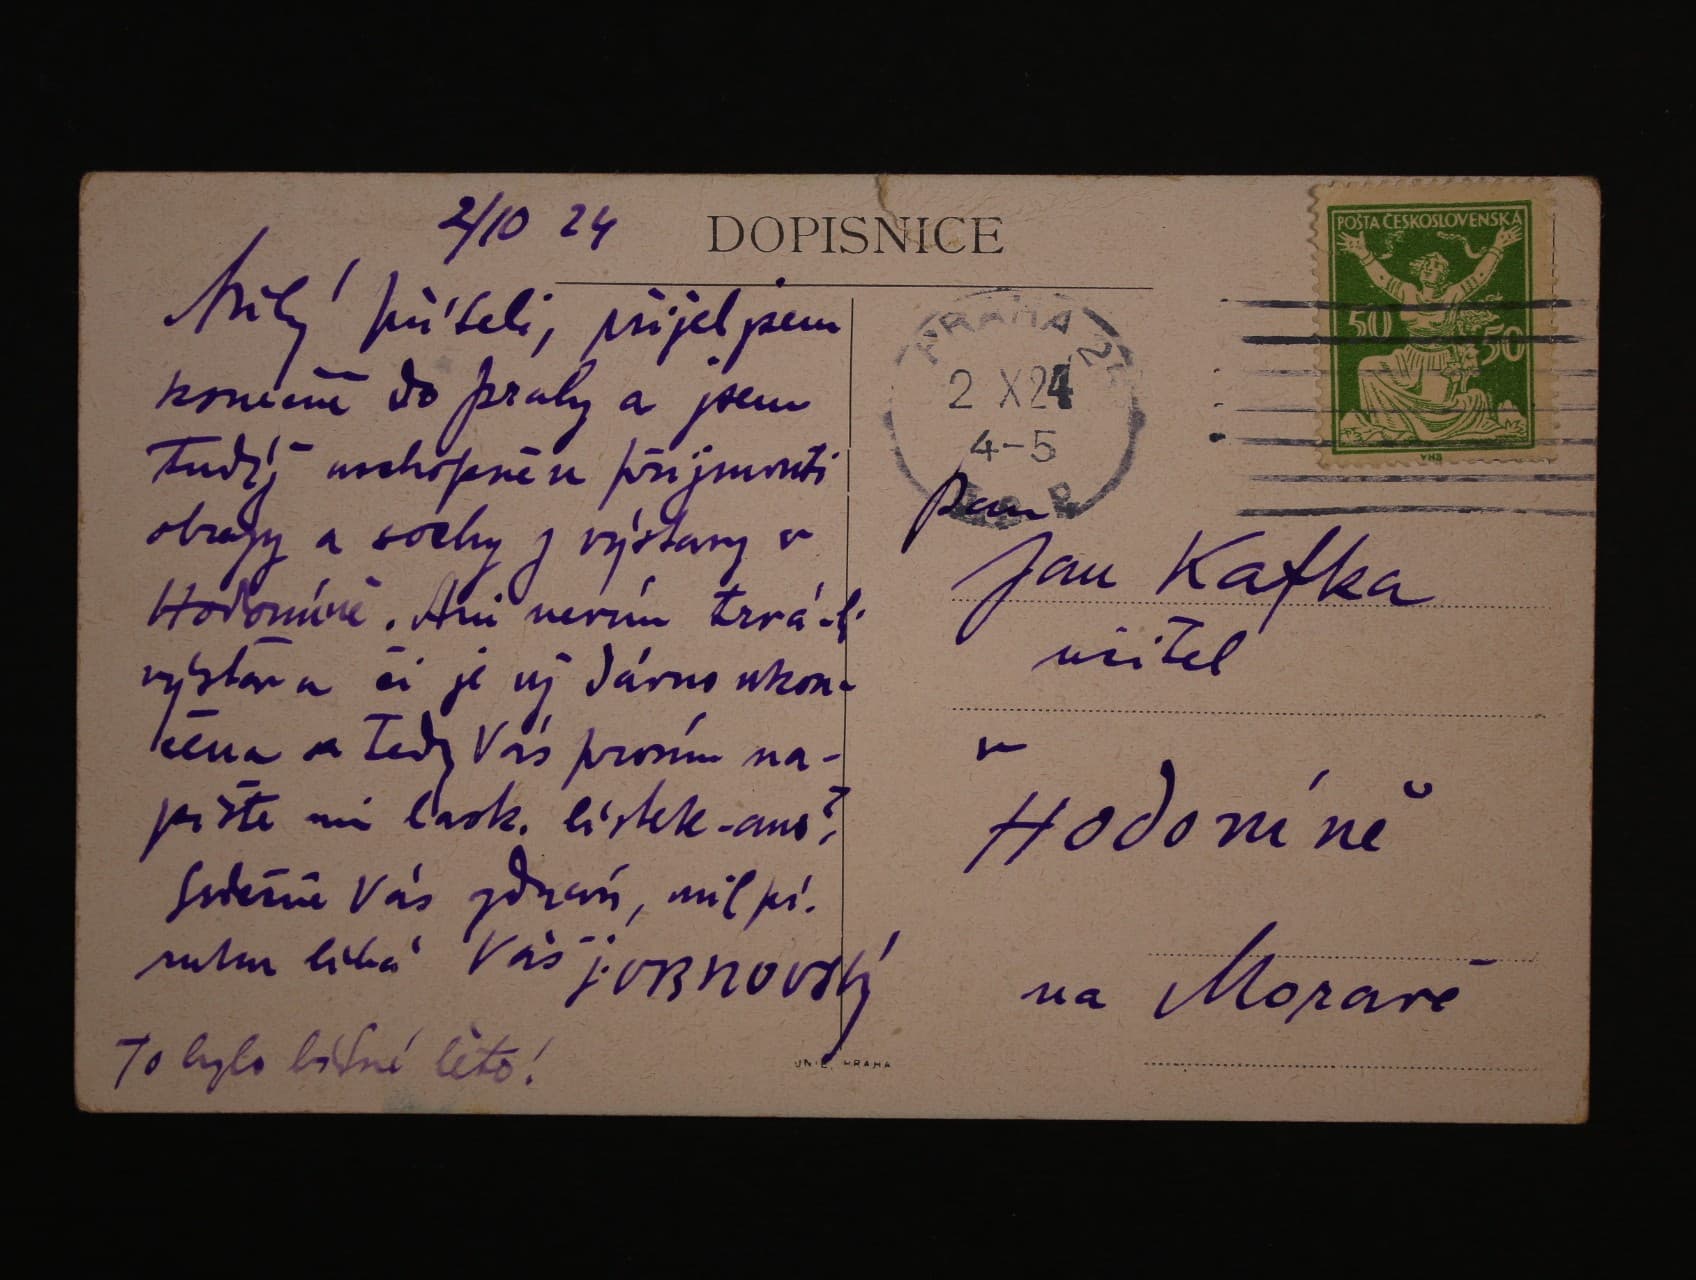 2/10 24
DOPISNICE
POŠTA ČESKOSLOVENSKÁ
50 50
Milý příteli, přijel jsem
konečně do Prahy a jsem
tudíž uschopněn přijmouti
obrazy a sochy z výstavy v
Hodoníně. Ani nevím trvá-li
výstava či je už dávno ukon-
čena a tedy Vás prosím na-
pište mi lask. lístek-ano?
Srdečně Vás zdraví, mil pí.
ruku líbá Váš j. UBNOVSKÝ
To bylo bídné léto!
PRAHA
2 X 24
4-5
Pan
Jan Kafka
učitel
v
Hodoníně
na Moravě
UNIE PRAHA